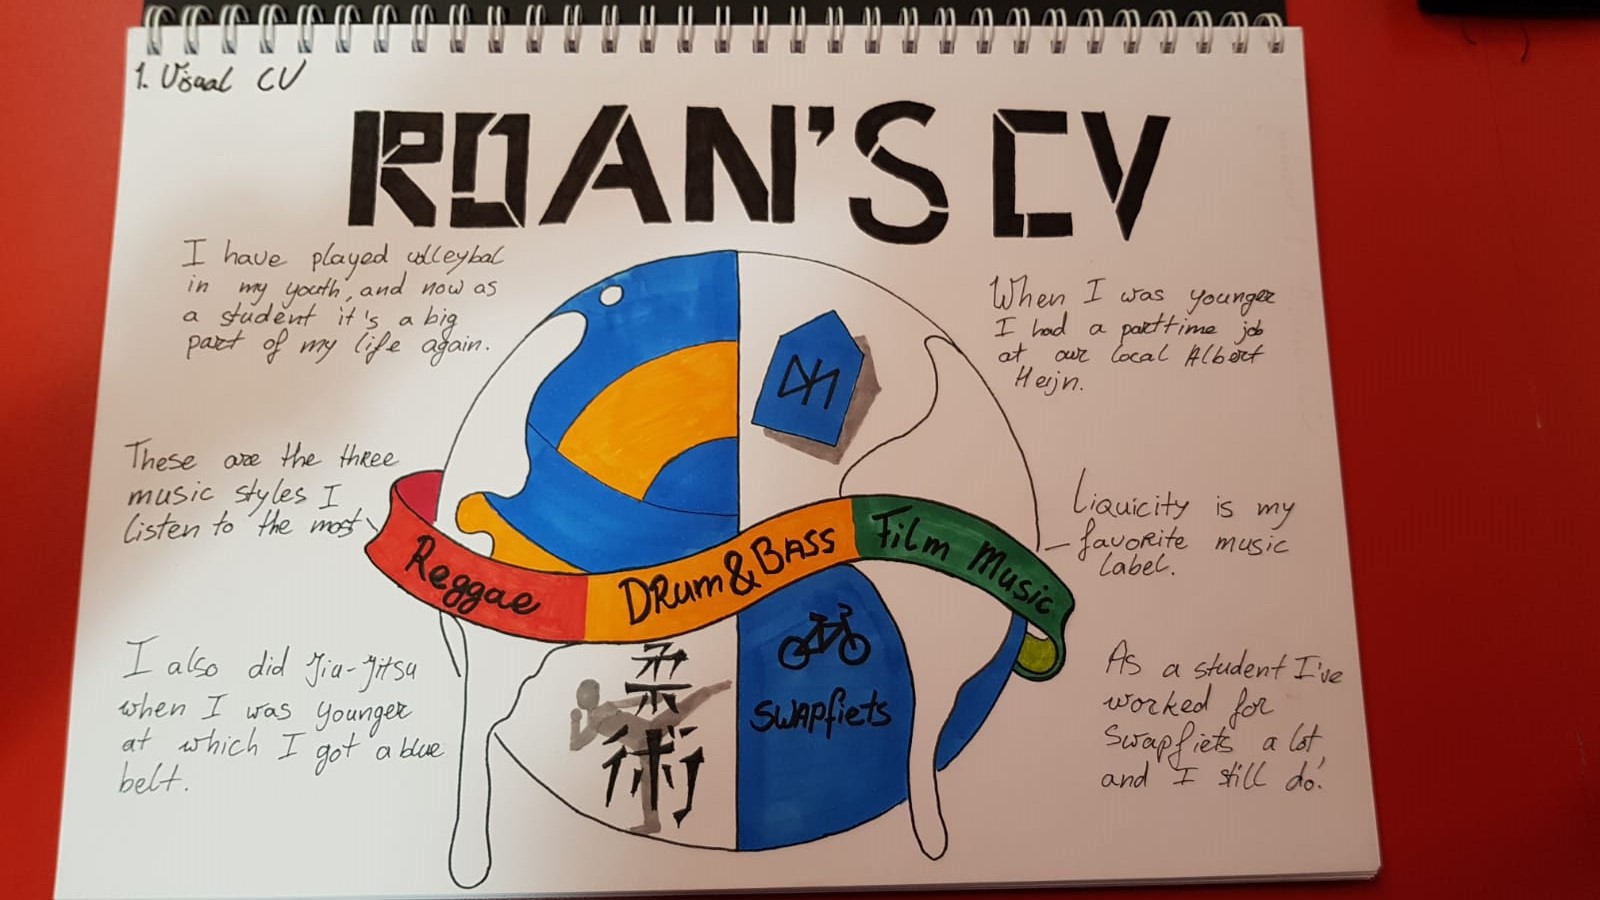 1. Visual CV
ROAN'S CV
I have played volleybal
in my youth, and now as
a student it's a big
part of my life again.
When I was younger
I had a parttime job
at our local Albert
Heijn.
These are the three
music styles I
listen to the most
Liquicity is my
favorite music
label.
Reggae
DRum&BASS
Film Music
I also did Jiu-Jitsu
when I was younger
at which I got a blue
belt.
柔
術
SWAPfiets
As a student I've
worked for
Swapfiets a lot,
and I still do!